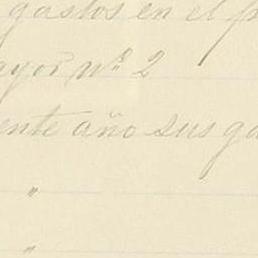 gastos en el p
ayor nº 2
ente año sus ga
"
"